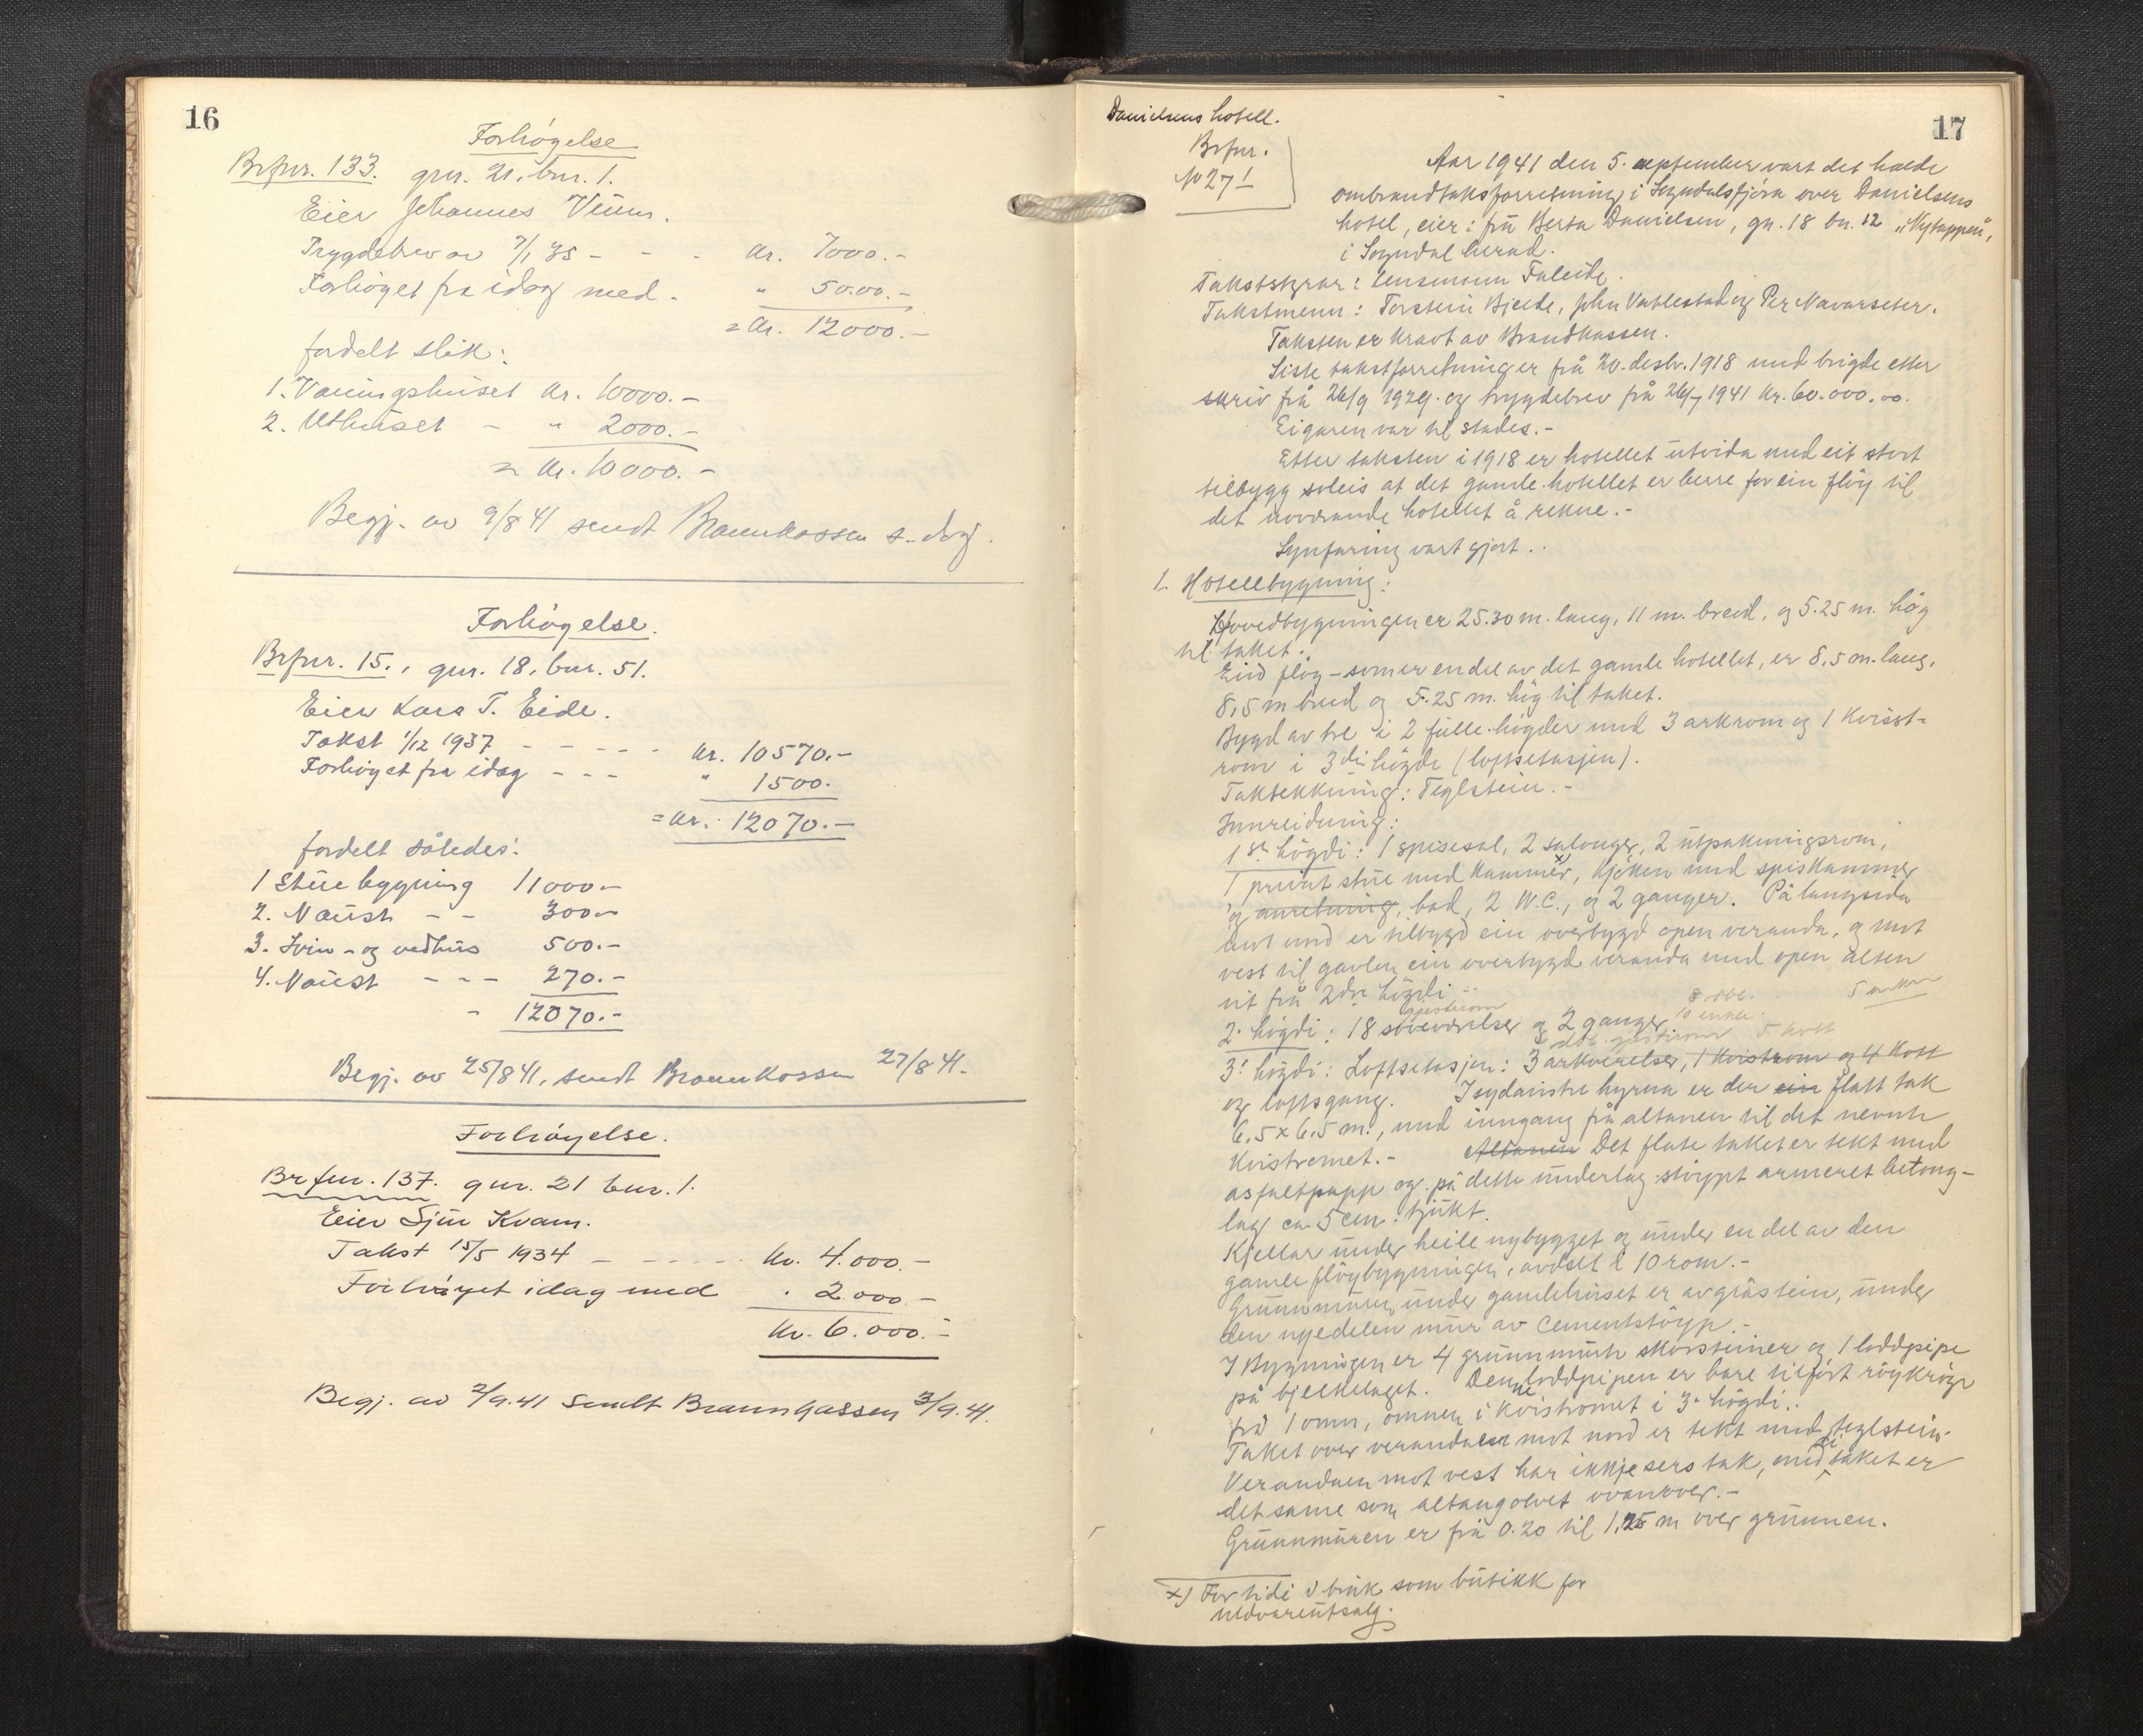 16
Forhøgelse
Brfnr. 133. gnr. 21, bnr. 1.
Eier Johannes Venn.
Trygdebrev av 7/1 35 - - - kr. 7000.-
Forhöget fra idag med - " 5000.-
= kr. 12000.-
fordelt slik:
1. Vaaningshuset kr. 10000.-
2. Uthuset - " 2000.-
= kr. 10000.-
Begj. av 9/8 41 sendt Brannkassen s. dag.
Forhøgelse.
Brfnr. 15., gnr. 18, bnr. 51.
Eier Kara T. Eide.
Takst 1/12 1937 - - - - - kr. 10570.-
Forhöyet fra idag - - - " 1500.
= kr. 12070.-
fordelt således:
1 Stuebygning 11000.-
2. Naust - - 300.-
3. Svin- og vedhus 500.-
4. Naust - - - 270.-
- 12070.-
Begj. av 25/8 41, sendt Brannkassen 27/8 41.
Forhøyelse.
Brfnr. 137. gnr. 21 bnr. 1.
Eier Sjur Kvam.
Takst 15/5 1934 - - - - - kr. 4.000.-
Forhøyet idag med . 2.000.-
kr. 6.000.-
Begj. av 2/9.41 sendt Brannkassen 3/9.41.
Danielsens hotell.
17
Brfnr.
№ 271
Aar 1941 den 5. september vart det halde
ombrandtakstforretning i Sogndalsfjöra over Danielsens
hotel, eier: fru Berta Danielsen, gn. 18 bn. 12 "Nytappen",
i Sogndal herad.
Takststyrar: lensmann Faleide.
Takstmenn: Torstein Bjelde, John Vatlestad og Per Navarseter.
Taksten er kravt av Brandkassen.
Siste takstforretning er frå 20. desbr. 1918 med brigde etter
skriv frå 26/9 1929. og trygdebrev frå 26/7 1941 kr. 60.000,00.
Eigaren var til stades.-
Etter taksten i 1918 er hotellet utvida med eit stort
tilbygg soleis at det gamle hotellet er berre for ein flöy til
det noverande hotellet å rekne.-
Synfaring vart gjort..
1. Hotellbygning:
Hovedbygningen er 25.30 m. lang, 11 m. breid, og 5.25 m. høg
til taket.
Eid flöy - som er en del av det gamle hotellet, er 8,5 m. lang,
8,5 m breid og 5.25 m. hög til taket.
Bygd av tre i 2 fulle högder med 3 arkrom og 1 kvist=
rom i 3die högde (loftsetasjen).
Taktekkning: Teglstein.-
Innreidning:
1st. högdi: 1 spisesal, 2 salonger, 2 utpakningsrom,
1 privat stue med kammer x), kjöken med spiskammer
og anretning, bad, 2 W.C., og 2 ganger. På langsida
mot nord er tilbygd ein overbygd open veranda, og mot
vest til gavlen ein overbygd veranda med open altan
ut frå 2dre högdi..
gjesterom 8 dbl. 10 enkle 5 enkle
2. högdi: 18 soveværelser og 2 ganger
dbl. gjesterom 5 kott
3. högdi: Loftsetasjen: 3 arkværelser, 1 kvistrom og 4 kott
og loftsgang. I sydaustre hyrna er der ein flatt tak
6,5 x 6,5 m., med inngang frå altanen til det nevnte
kvistromet.- Altanen Det flate taket er tekt med
asfaltpapp og på dette underlag stöypt armeret betong-
lag ca 5 cm. tjukt.
Kjellar under heile nybygget og under en del av den
gamle flöybygningen, avdelt i 10 rom.-
Grunnmuren under gamlehuset er av gråstein, under
den nye delen mur av cementstöyp.-
I Bygningen er 4 grunnmurte skorsteiner og 1 loddpipe
på bjelkelaget. Denne loddpipen er bare tilfört röykrör
frå 1 omn, omnen i kvistromet i 3. högdi..
Taket over verandaen mot nord er tekt med teglstein.
Verandaen mot vest har ikkje sers tak, med di taket er
det same som altangolvet ovanover.-
Grunnmuren er frå 0.20 til 1,25 m over grunnen.
x) For tidi i bruk som butikk for
uldvareutsalg.